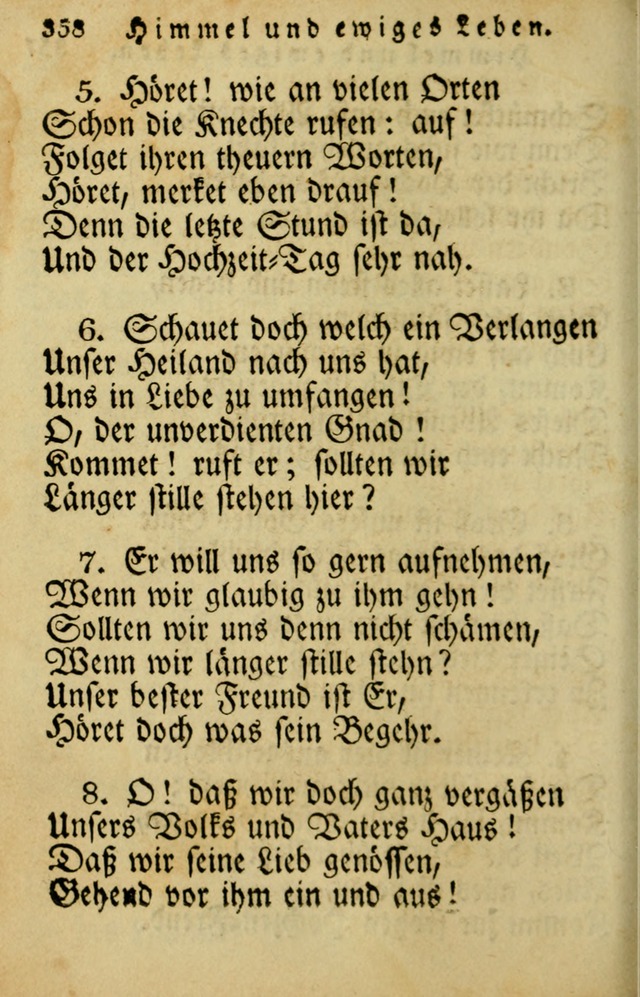 358 Himmel und ewiges Leben.
5. Höret! wie an vielen Orten
Schon die Knechte rufen: auf!
Folget ihren theuern Worten,
Höret, merket eben drauf!
Denn die letzte Stund ist da,
Und der Hochzeit-Tag sehr nah.
6. Schauet doch welch ein Verlangen
Unser Heiland nach uns hat,
Uns in Liebe zu umfangen!
O, der unverdienten Gnad!
Kommet! ruft er; sollten wir
Länger stille stehen hier?
7. Er will uns so gern aufnehmen,
Wenn wir glaubig zu ihm gehn!
Sollten wir uns denn nicht schämen,
Wenn wir länger stille stehn?
Unser bester Freund ist Er,
Höret doch was sein Begehr.
8. O! daß wir doch ganz vergäßen
Unsers Volks und Vaters Haus!
Daß wir seine Lieb genössen,
Gehend vor ihm ein und aus!